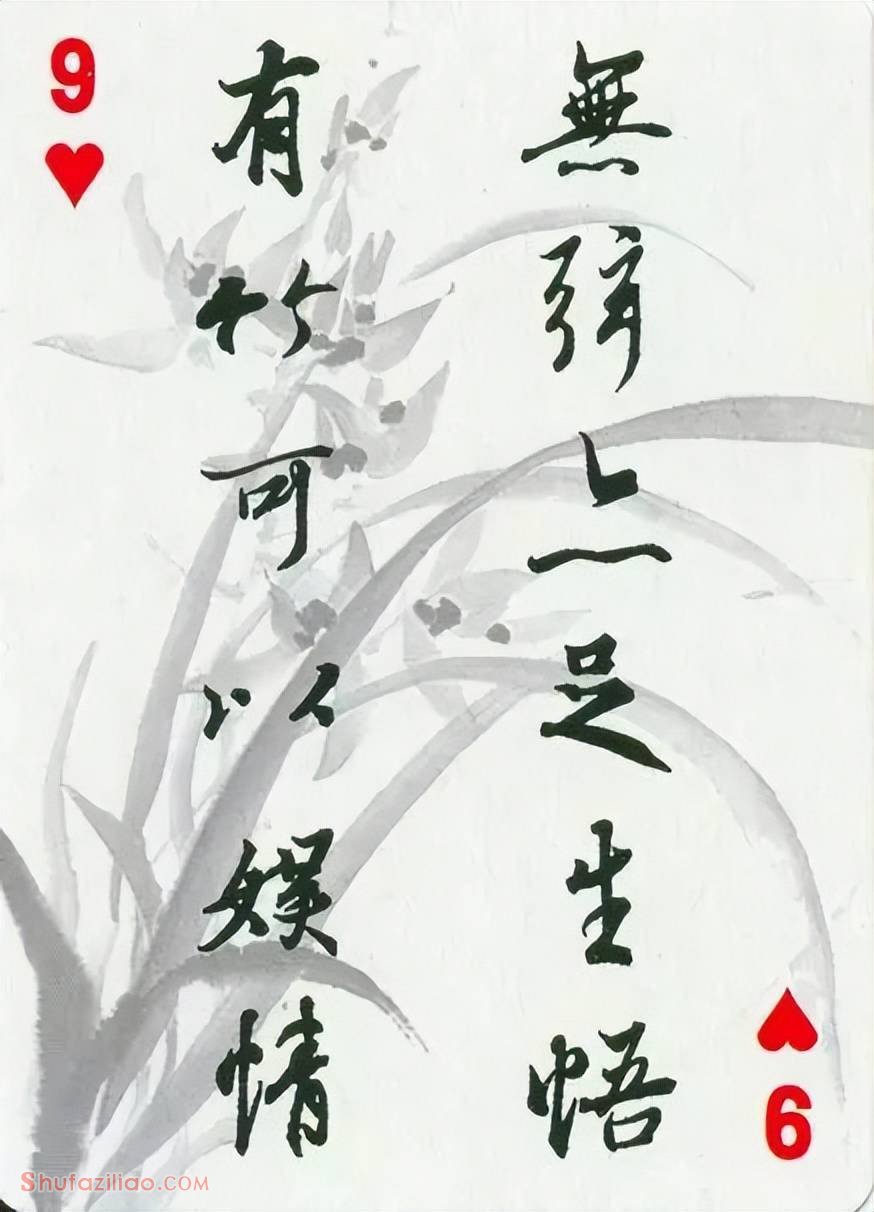 9
無弦亦足生悟
有竹可以娱情
9
Shufaziliao.com